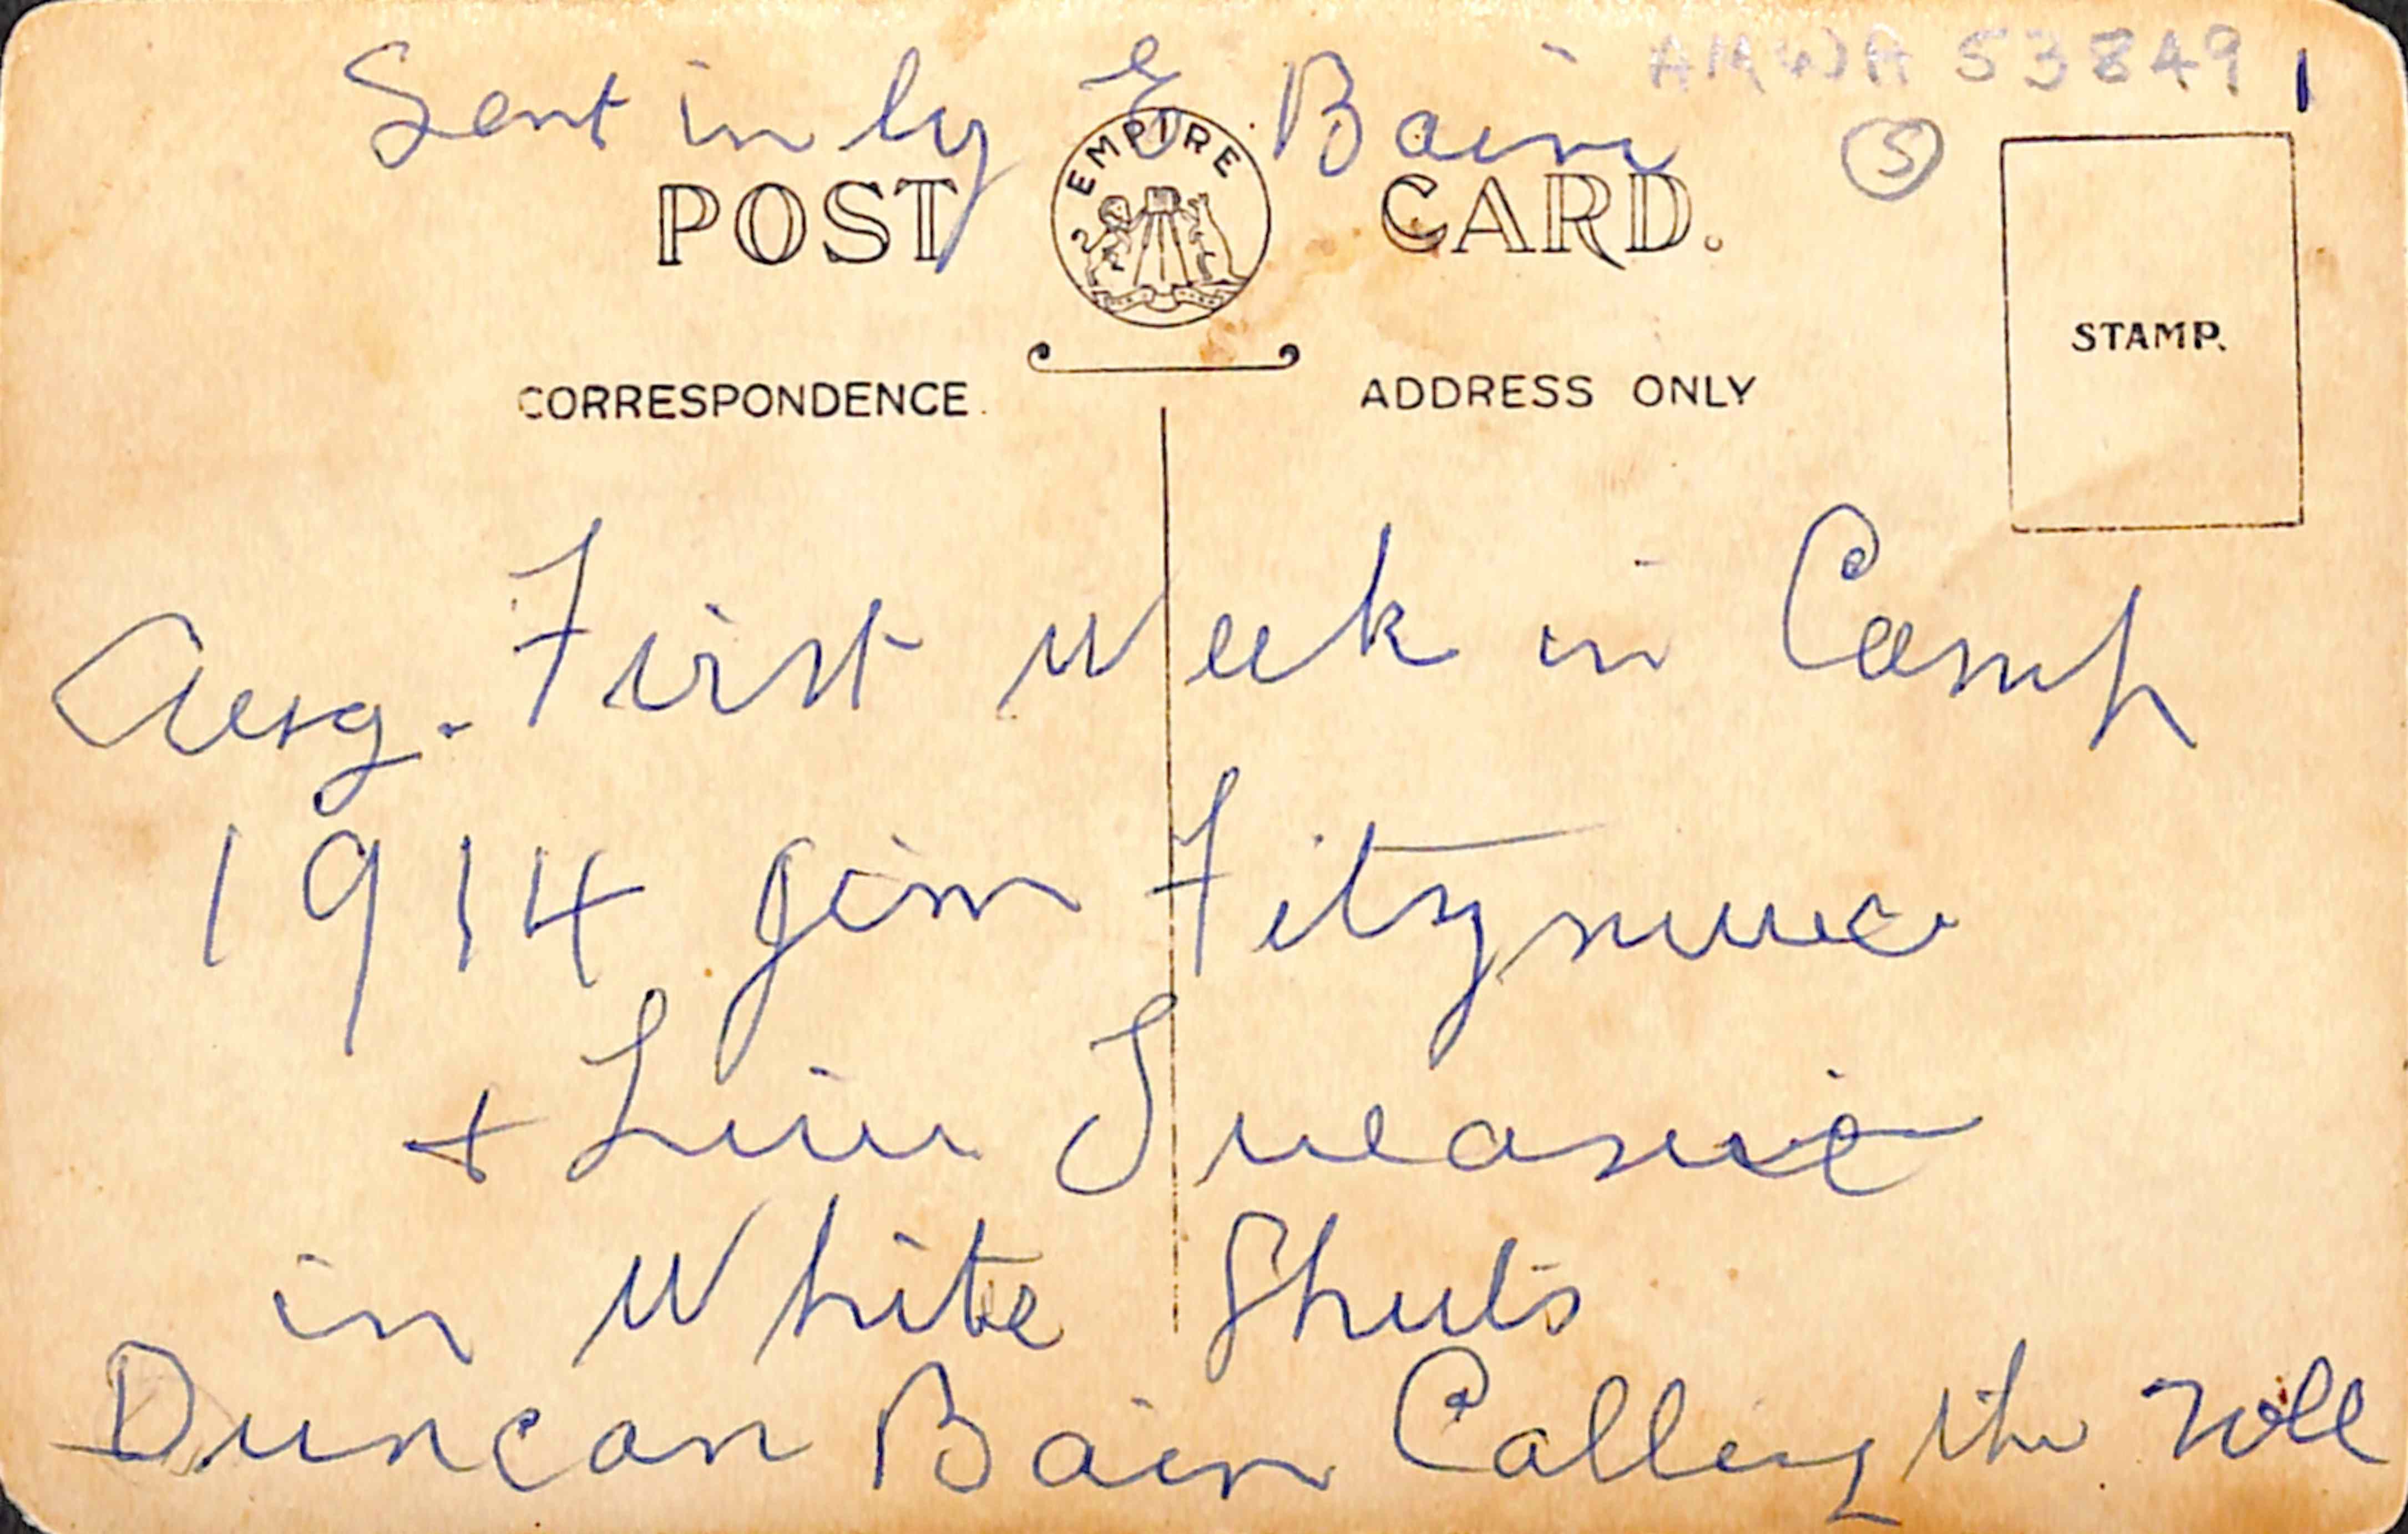 AMWA 53849
Sent in by E Bain
5
EMPIRE
POST CARD.
STAMP.
CORRESPONDENCE. ADDRESS ONLY
Aug. First week in Camp
1914 Jim
+
in White
Duncan Bain Calling the roll